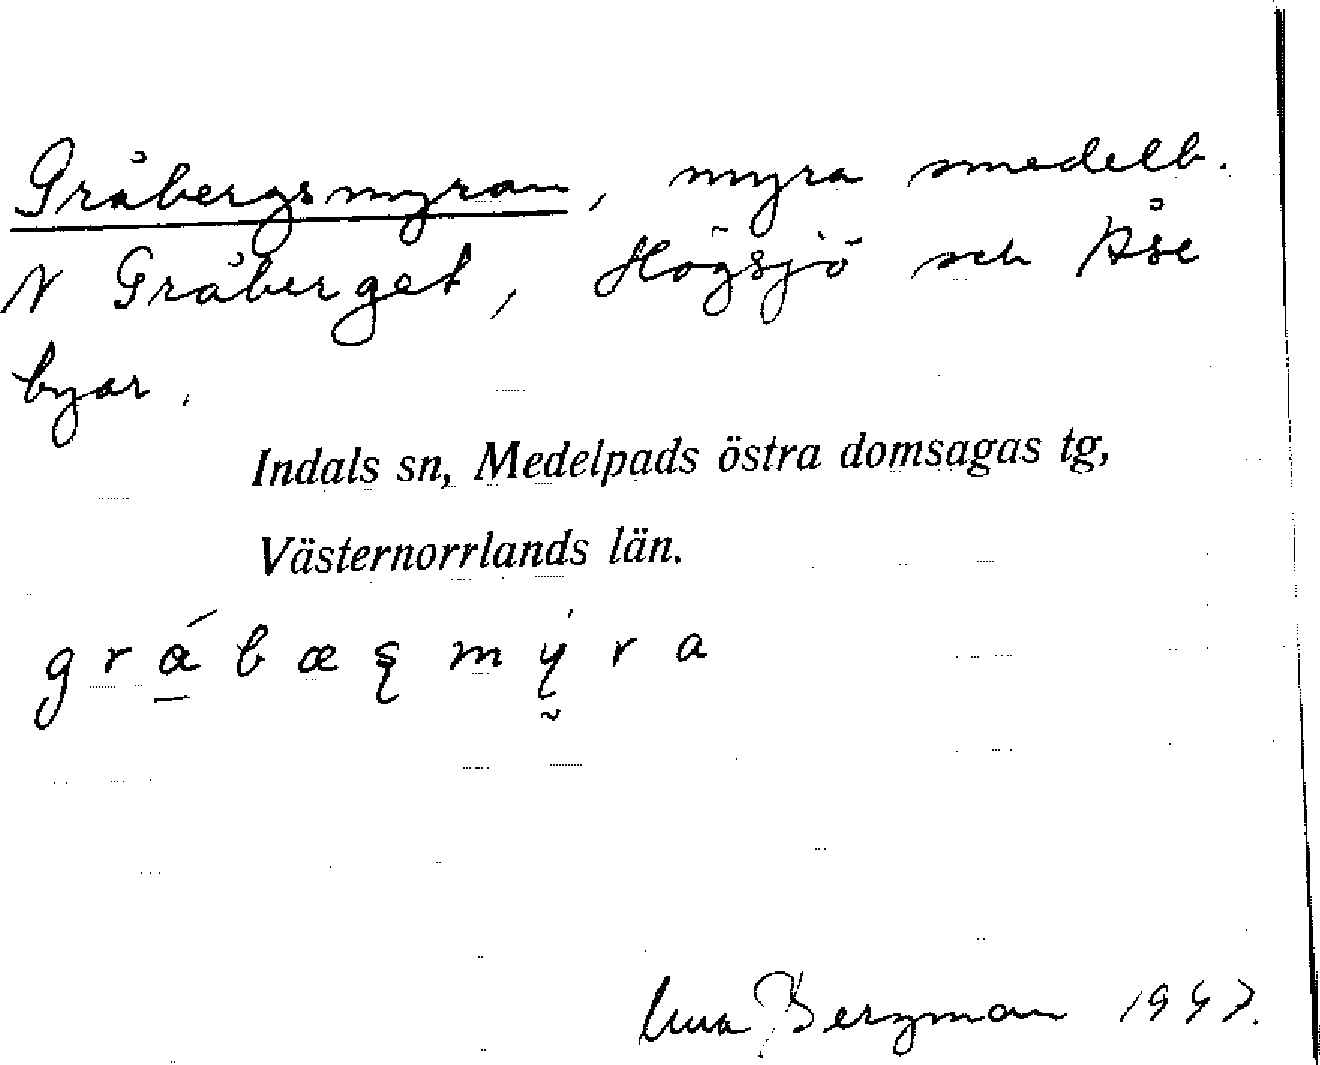 Gråbergsmyran, myra omedelb.
N Gråberget, Högsjö och Åse
byar.
Indals sn, Medelpads östra domsagas tg,
Västernorrlands län.
Bergman 1947.